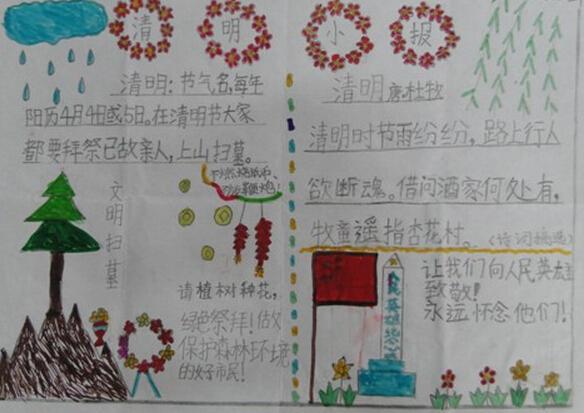 清明小报
清明:节气名,每年
阳历4月4日或5日。在清明节大家
都要拜祭已故亲人,上山扫墓。
文明扫墓
请植树种花,
绿色祭拜!做
保护森林环境
的好市民!
清明 唐.杜牧
清明时节雨纷纷,路上行人
欲断魂。借问酒家何处有,
牧童遥指杏花村。(诗词摘选)
让我们向人民英雄
致敬!
永远怀念他们!